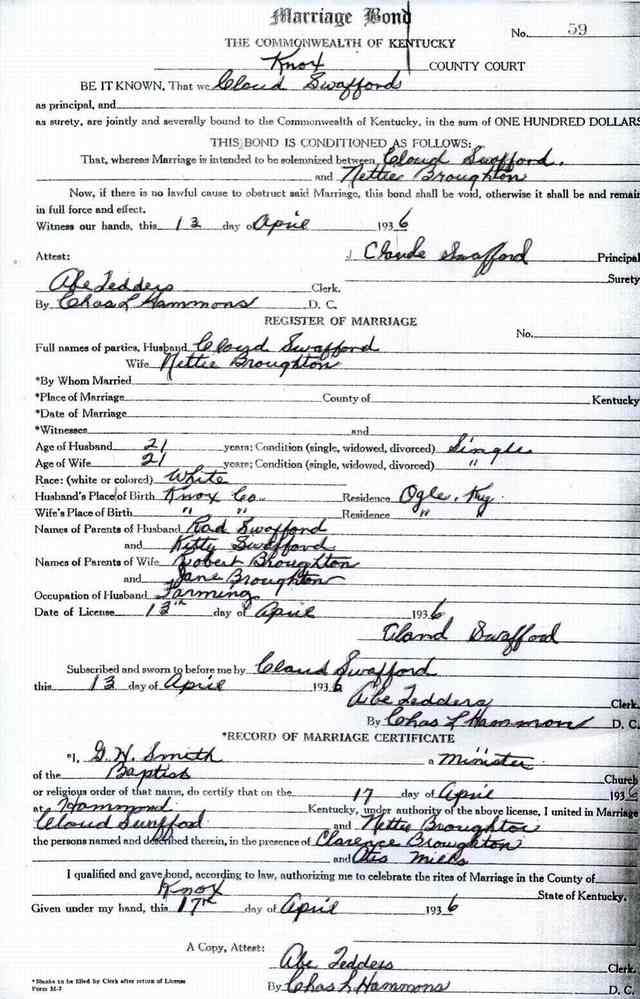 Marriage Bond
No. 59
THE COMMONWEALTH OF KENTUCKY
Knox COUNTY COURT
BE IT KNOWN, That we Cloud Swafford
as principal, and
as surety, are jointly and severally bound to the Commonwealth of Kentucky, in the sum of ONE HUNDRED DOLLARS
THIS BOND IS CONDITIONED AS FOLLOWS:
That, whereas Marriage is intended to be solemnized between Cloud Swafford.
and Nettie Broughton
Now, if there is no lawful cause to obstruct said Marriage, this bond shall be void, otherwise it shall be and remain
in full force and effect.
Witness our hands, this 13 day of April 1936
Attest: Claude Swafford Principal
Surety
Abe Tedders Clerk.
By Chas L Hammons D. C.
REGISTER OF MARRIAGE
No.
Full names of parties, Husband Cloud Swafford
Wife Nettie Broughton
*By Whom Married
*Place of Marriage County of Kentucky
*Date of Marriage
*Witnesses and
Age of Husband 21 years; Condition (single, widowed, divorced) Single
Age of Wife 21 years; Condition (single, widowed, divorced) "
Race: (white or colored) White
Husband's Place of Birth Knox Co. Residence Ogle, Ky.
Wife's Place of Birth " " Residence " "
Names of Parents of Husband Rod Swafford
and Kitty Swafford
Names of Parents of Wife Robert Broughton
and Jane Broughton
Occupation of Husband Farming
Date of License 13th day of April 1936
Swafford
Subscribed and sworn to before me by Cloud Swafford
this 13 day of April 1936
Abe Tedders Clerk.
By Chas L Hammons D. C.
*RECORD OF MARRIAGE CERTIFICATE
*I, G. H. Smith a Minister
of the Baptist Church
or religious order of that name, do certify that on the 17 day of April 1936
at Hammond Kentucky, under authority of the above license, I united in Marriage
Cloud Swafford and Nettie Broughton
the persons named and described therein, in the presence of Clarence Broughton
and Otis Mills
I qualified and gave bond, according to law, authorizing me to celebrate the rites of Marriage in the County of
Knox State of Kentucky.
Given under my hand, this 17th day of April 1936
A Copy, Attest:
Abe Tedders Clerk.
By Chas L Hammons D. C.
*Blanks to be filled by Clerk after return of License
Form M-2